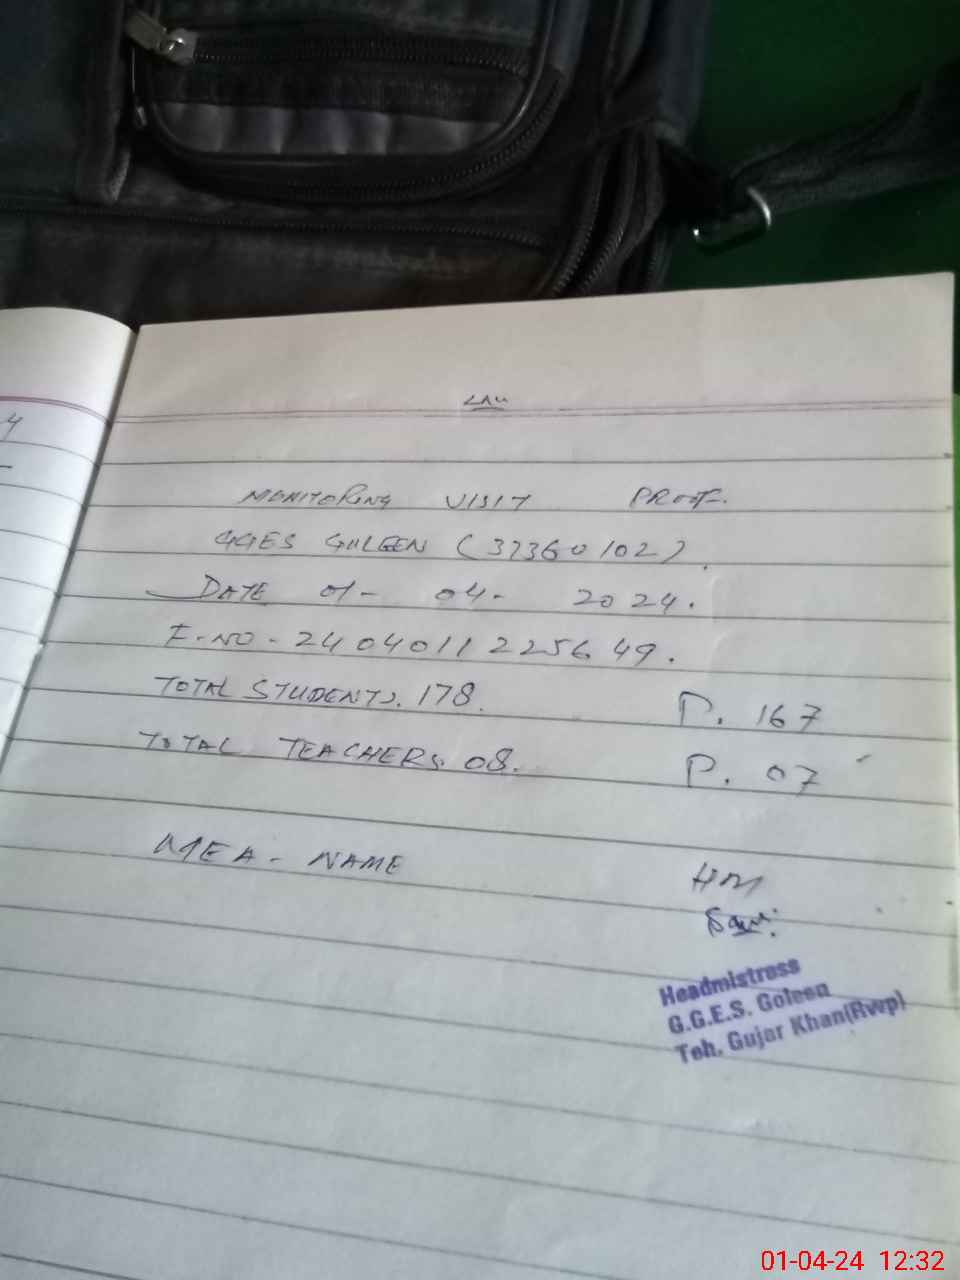 4
MONITORING VISIT PROOF.
GGES GULEEN (37360102).
DATE 01- 04- 2024.
F-NO-240401122256 49.
TOTAL STUDENTS. 178. P. 167
TOTAL TEACHERS. 08. P. 07
MEA - NAME
HM
Headmistress
G.G.E.S. Goleen
Teh. Gujar Khan(Rwp)
01-04-24 12:32